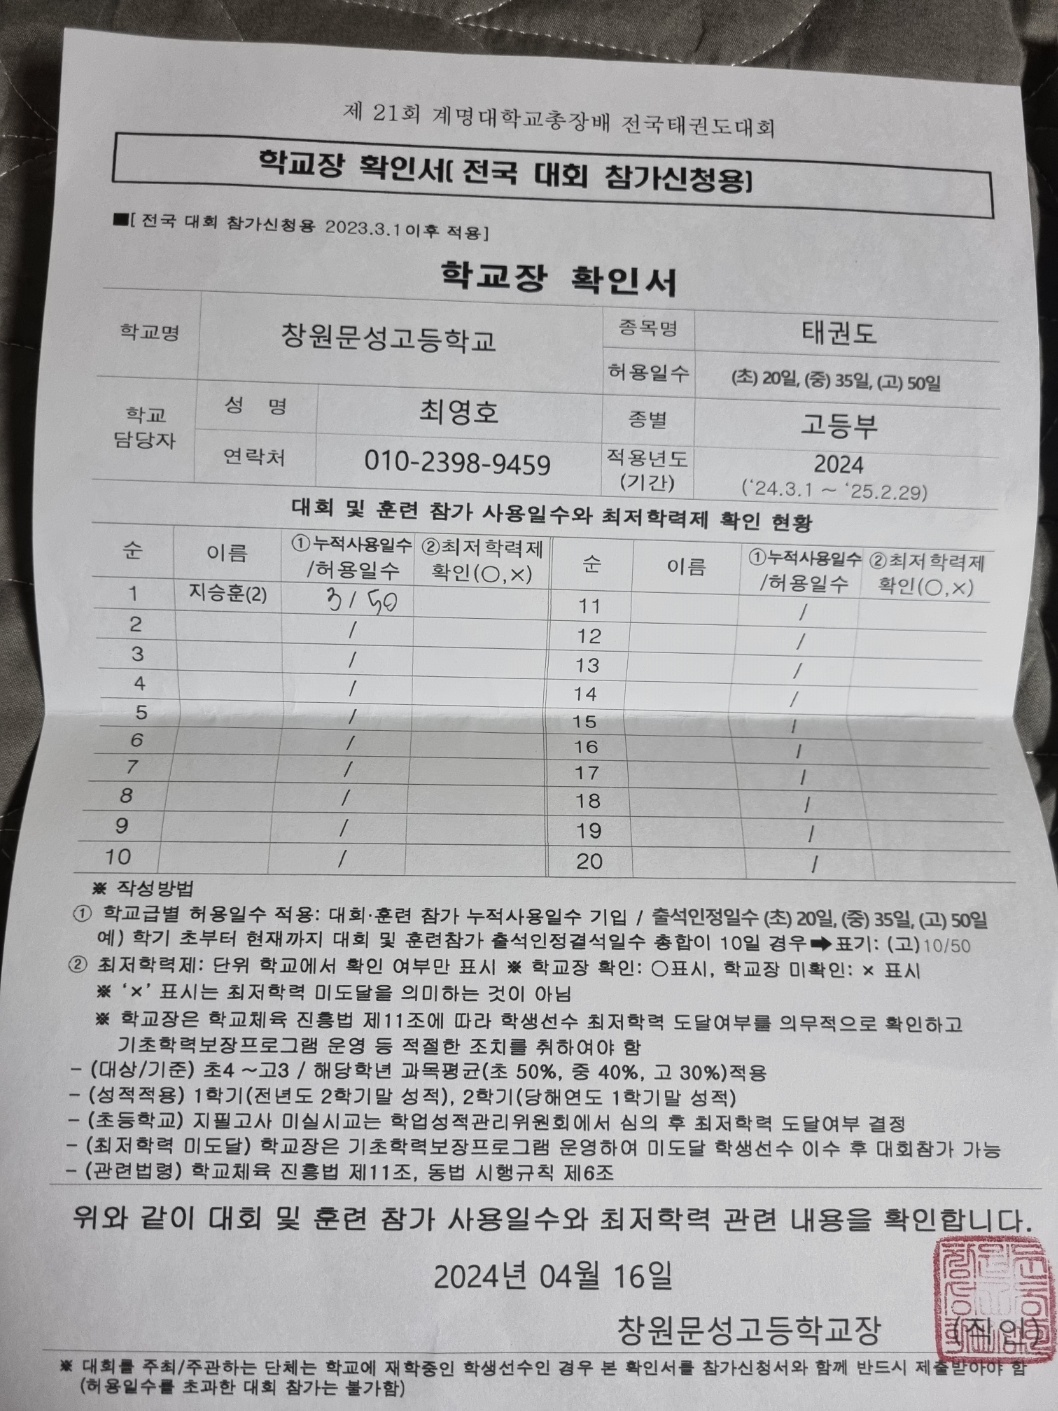 제 21회 계명대학교총장배 전국태권도대회
학교장 확인서[ 전국 대회 참가신청용]
■[ 전국 대회 참가신청용 2023.3.1이후 적용]
학교장 확인서
학교명 창원문성고등학교 종목명 태권도
허용일수 (초) 20일, (중) 35일, (고) 50일
학교 담당자 성 명 최영호 종별 고등부
연락처 010-2398-9459 적용년도 (기간) 2024 (‘24.3.1 ~ ‘25.2.29)
대회 및 훈련 참가 사용일수와 최저학력제 확인 현황
순 이름 ①누적사용일수 /허용일수 ②최저학력제 확인(○,×) 순 이름 ①누적사용일수 /허용일수 ②최저학력제 확인(○,×)
1 지승훈(2) 3 / 50 11 /
2 / 12 /
3 / 13 /
4 / 14 /
5 / 15 /
6 / 16 /
7 / 17 /
8 / 18 /
9 / 19 /
10 / 20 /
※ 작성방법
① 학교급별 허용일수 적용: 대회·훈련 참가 누적사용일수 기입 / 출석인정일수 (초) 20일, (중) 35일, (고) 50일
예) 학기 초부터 현재까지 대회 및 훈련참가 출석인정결석일수 총합이 10일 경우➡표기: (고)10/50
② 최저학력제: 단위 학교에서 확인 여부만 표시 ※ 학교장 확인: ○표시, 학교장 미확인: × 표시
※ ‘×’ 표시는 최저학력 미도달을 의미하는 것이 아님
※ 학교장은 학교체육 진흥법 제11조에 따라 학생선수 최저학력 도달여부를 의무적으로 확인하고
기초학력보장프로그램 운영 등 적절한 조치를 취하여야 함
- (대상/기준) 초4 ~고3 / 해당학년 과목평균(초 50%, 중 40%, 고 30%)적용
- (성적적용) 1학기(전년도 2학기말 성적), 2학기(당해연도 1학기말 성적)
- (초등학교) 지필고사 미실시교는 학업성적관리위원회에서 심의 후 최저학력 도달여부 결정
- (최저학력 미도달) 학교장은 기초학력보장프로그램 운영하여 미도달 학생선수 이수 후 대회참가 가능
- (관련법령) 학교체육 진흥법 제11조, 동법 시행규칙 제6조
위와 같이 대회 및 훈련 참가 사용일수와 최저학력 관련 내용을 확인합니다.
2024년 04월 16일
창원문성고등학교장 (직인)
※ 대회를 주최/주관하는 단체는 학교에 재학중인 학생선수인 경우 본 확인서를 참가신청서와 함께 반드시 제출받아야 함
(허용일수를 초과한 대회 참가는 불가함)